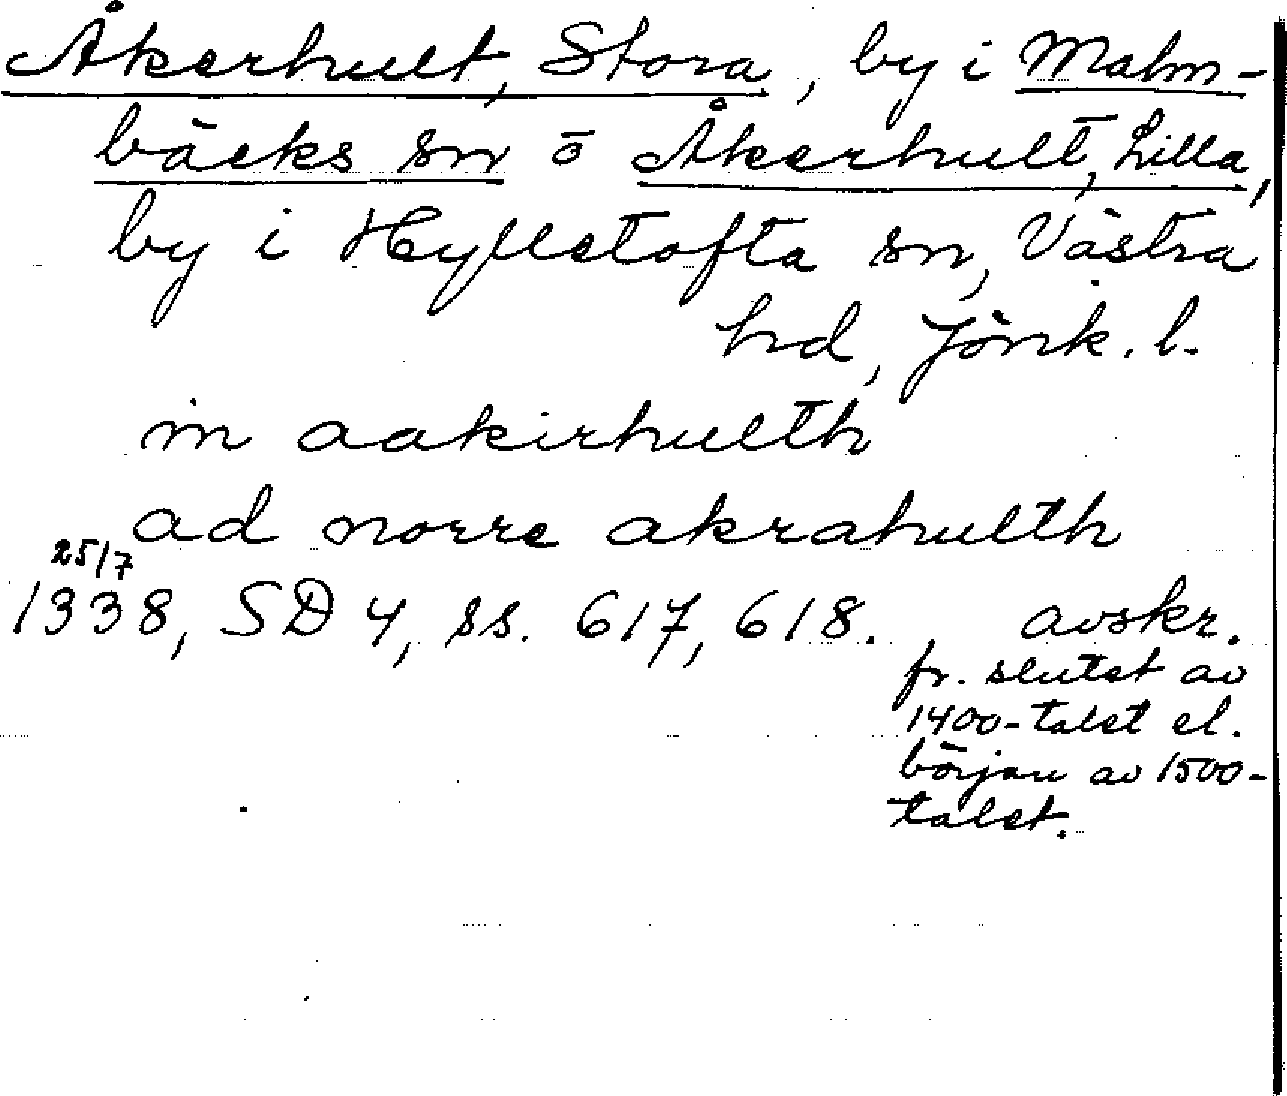 Åkerhult, Stora, by i Malm-
bäcks sn o Åkerhult, Lilla,
by i Hylletofta sn, Västra
hd, Jönk. l.
in aakirhulth
ad norre akrahulth
25/7
1338, SD 4, ss. 617, 618. avskr.
fr. slutet av
1400-talet el.
början av 1500-
talet.